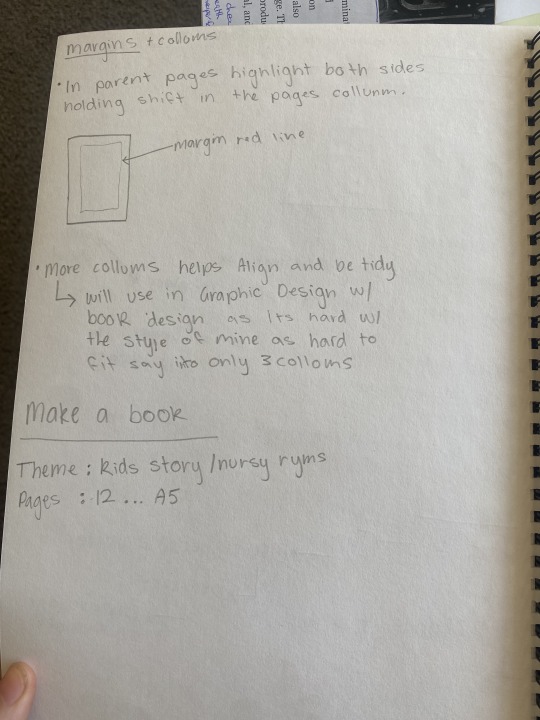 margins + colloms
• In parent pages highlight both sides
holding shift in the pages collunm.
margin red line
• More collums helps Align and be tidy
will use in Graphic Design w/
book design as its hard w/
the style of mine as hard to
fit say into only 3 colloms
Make a book
Theme : kids story /nursy ryms
Pages : 12 ... A5